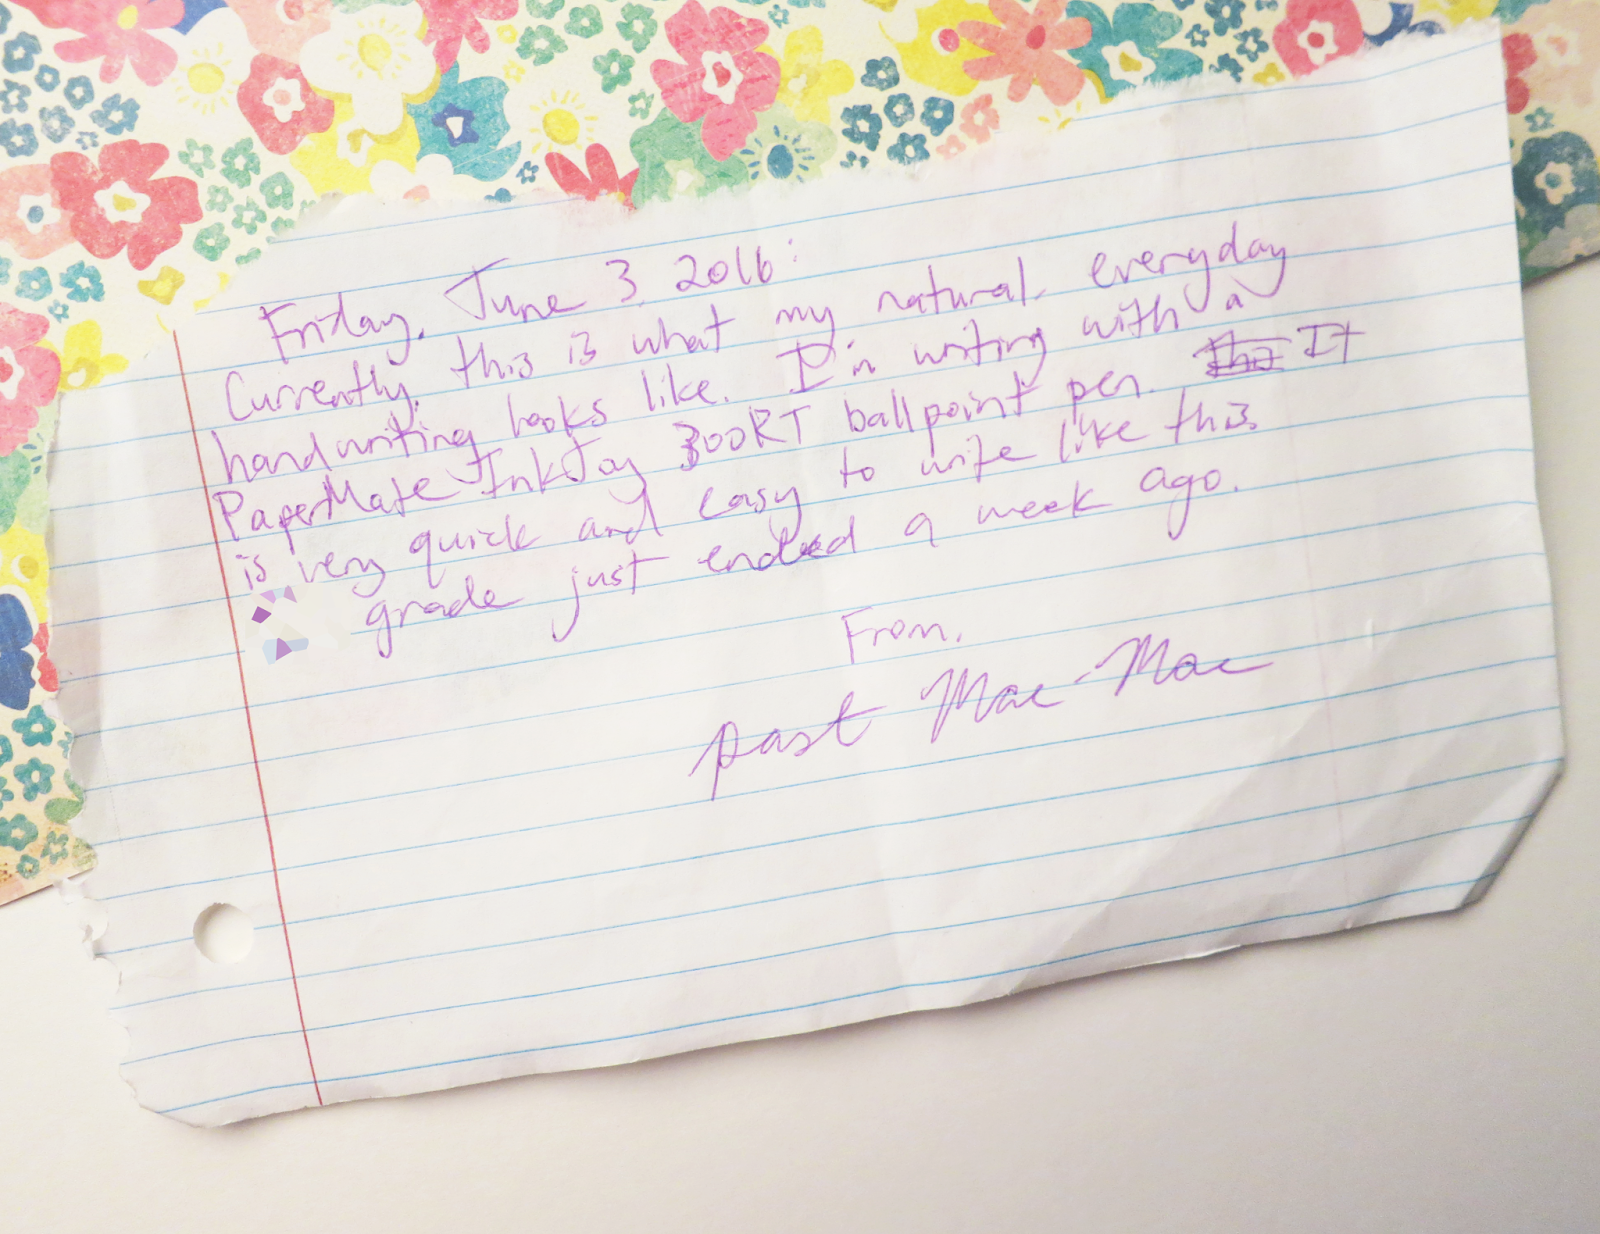 Friday, June 3, 2016:
Currently, this is what my natural, everyday
handwriting looks like. I'm writing with a
PaperMate InkJoy 300RT ballpoint pen. It
is very quick and easy to write like this.
grade just ended a week ago.
From,
past Mac-Mac